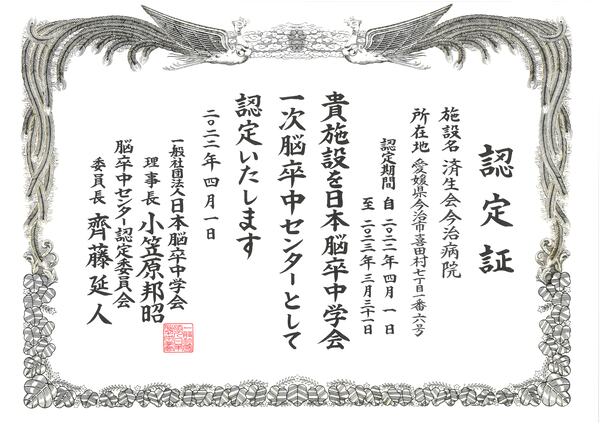 認定証
施設名 済生会今治病院
所在地 愛媛県今治市喜田村七丁目一番六号
認定期間 自 二〇二二年 四月 一日
至 二〇二三年 三月三十一日
貴施設を日本脳卒中学会
一次脳卒中センターとして
認定いたします
二〇二二年四月一日
一般社団法人日本脳卒中学会
理事長 小笠原邦昭
脳卒中センター認定委員会
委員長 齊藤延人